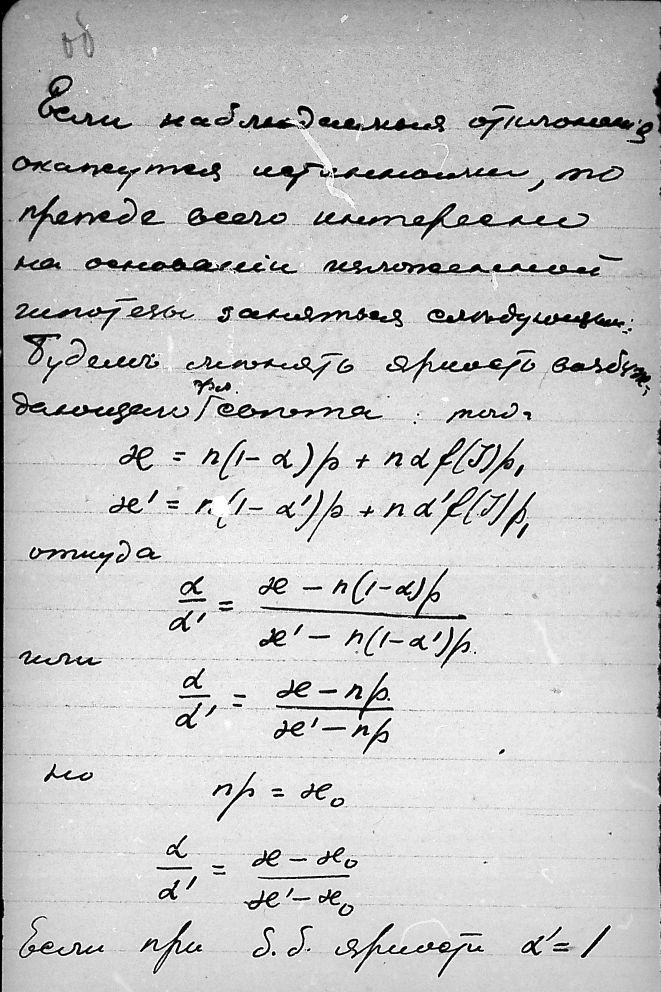 об
Если наблюдаемыя отклоненія
окажутся истинными, то
прежде всего интересно
на основаніи изложенной
гипотезы заняться слѣдующим:
Будемъ мѣнять яркость возбуж-
дающаго свѣта:
ϰ = n(1-α)p + nαf(J)p₁
ϰ' = n(1-α')p + nα'f(J)p₁
откуда
α/α' = (ϰ - n(1-α)p)/(ϰ' - n(1-α')p)
или
α/α' = (ϰ - np)/(ϰ' - np)
но np = ϰ₀
α/α' = (ϰ - ϰ₀)/(ϰ' - ϰ₀)
Если при б.б. яркости α' = 1